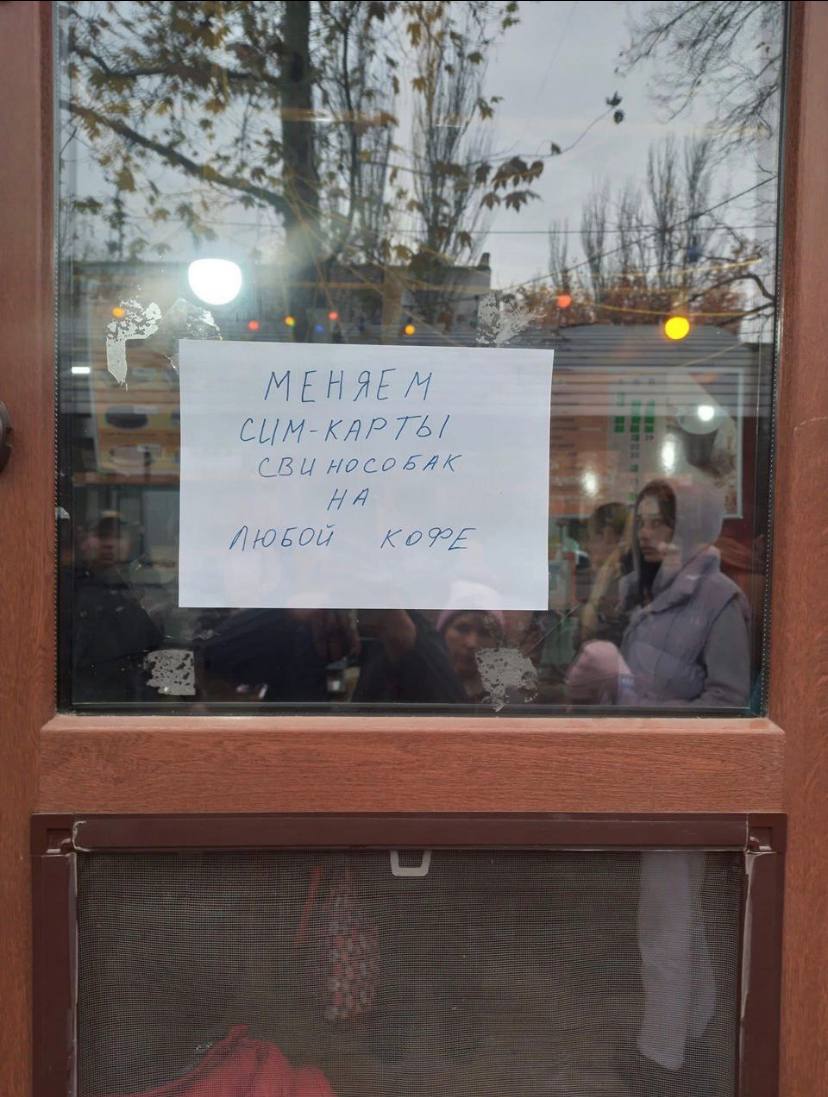 МЕНЯЕМ
СИМ-КАРТЫ
СВИНОСОБАК
НА
ЛЮБОЙ КОФЕ